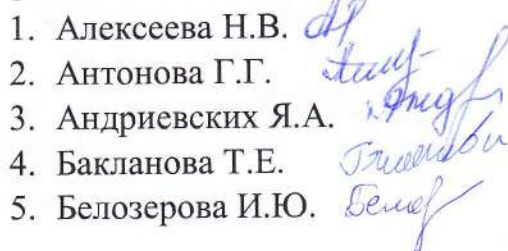 1. Алексеева Н.В.
2. Антонова Г.Г.
3. Андриевских Я.А.
4. Бакланова Т.Е.
5. Белозерова И.Ю.